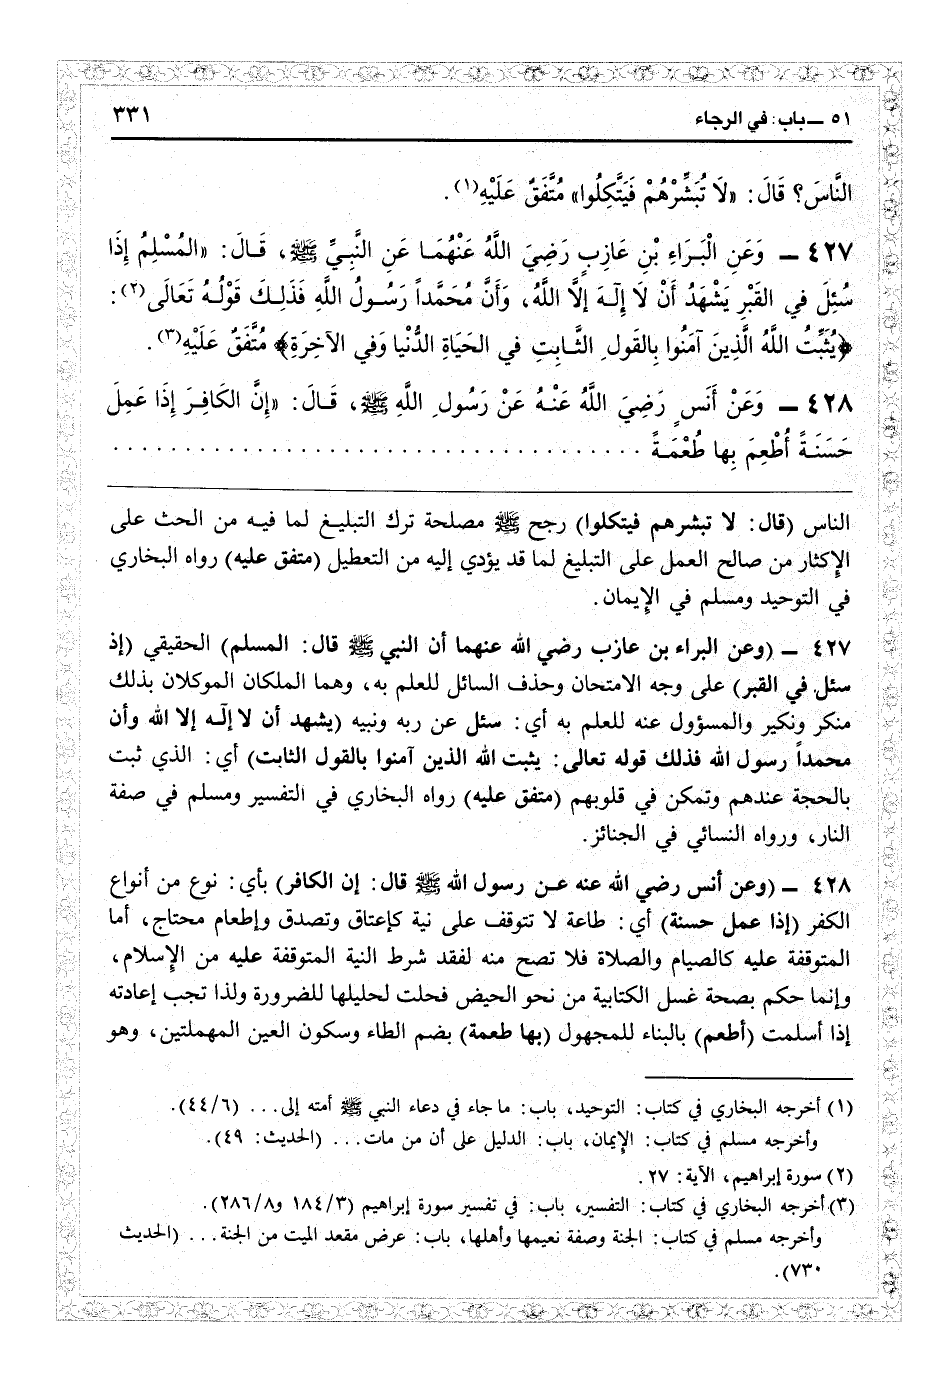 ٥١ ــ باب: في الرجاء ٣٣١
النَّاسَ؟ قَالَ: «لَا تُبَشِّرْهُمْ فَيَتَّكِلُوا» مُتَّفَقٌ عَلَيْهِ(١).
٤٢٧ ــ وَعَنِ الْبَرَاءِ بْنِ عَازِبٍ رَضِيَ اللَّهُ عَنْهُمَا عَنِ النَّبِيِّ ﷺ، قَـالَ: «المُسْلِمُ إِذَا
سُئِلَ في القَبْرِ يَشْهَدُ أَنْ لَا إِلَـهَ إِلَّا اللَّهُ، وَأَنَّ مُحَمَّداً رَسُـولُ اللَّهِ فَذَلِـكَ قَوْلُـهُ تَعَالَى(٢):
﴿يُثَبِّتُ اللَّهُ الَّذِينَ آمَنُوا بِالقَوْلِ الثَّـابِتِ في الحَيَاةِ الدُّنْيَا وَفي الآخِرَةِ﴾ مُتَّفَقٌ عَلَيْهِ(٣).
٤٢٨ ــ وَعَنْ أَنَسٍ رَضِيَ اللَّهُ عَنْـهُ عَنْ رَسُولِ اللَّهِ ﷺ، قَـالَ: «إِنَّ الكَافِـرَ إِذَا عَمِلَ
حَسَنَـةً أُطْعِمَ بِها طُعْمَـةً . . . . . . . . . . . . . . . . . . . . . . . . . . . . . . . . . . . . .
الناس (قال: لا تبشرهم فيتكلوا) رجح ﷺ مصلحة ترك التبليـغ لما فيـه من الحث على
الإكثار من صالح العمل على التبليغ لما قد يؤدي إليه من التعطيل (متفق عليه) رواه البخاري
في التوحيد ومسلم في الإيمان.
٤٢٧ ــ (وعن البراء بن عازب رضي الله عنهما أن النبي ﷺ قال: المسلم) الحقيقي (إذ
سئل في القبر) على وجه الامتحان وحذف السائل للعلم به، وهما الملكان الموكلان بذلك
منكر ونكير والمسؤول عنه للعلم به أي: سئل عن ربه ونبيه (يشهد أن لا إلـه إلا الله وأن
محمداً رسول الله فذلك قوله تعالى: يثبت الله الذين آمنوا بالقول الثابت) أي: الذي ثبت
بالحجة عندهم وتمكن في قلوبهم (متفق عليه) رواه البخاري في التفسير ومسلم في صفة
النار، ورواه النسائي في الجنائز.
٤٢٨ ــ (وعن أنس رضي الله عنه عـن رسول الله ﷺ قال: إن الكافر) بأي: نوع من أنواع
الكفر (إذا عمل حسنة) أي: طاعة لا تتوقف على نية كإعتاق وتصدق وإطعام محتاج، أما
المتوقفة عليه كالصيام والصلاة فلا تصح منه لفقد شرط النية المتوقفة عليه من الإسلام،
وإنما حكم بصحة غسل الكتابية من نحو الحيض فحلت لحليلها للضرورة ولذا تجب إعادته
إذا أسلمت (أطعم) بالبناء للمجهول (بها طعمة) بضم الطاء وسكون العين المهملتين، وهو
(١) أخرجه البخاري في كتاب: التوحيد، باب: ما جاء في دعاء النبي ﷺ أمته إلى... (٤٤/٦).
وأخرجه مسلم في كتاب: الإيمان، باب: الدليل على أن من مات... (الحديث: ٤٩).
(٢) سورة إبراهيم، الآية: ٢٧.
(٣) أخرجه البخاري في كتاب: التفسير، باب: في تفسير سورة إبراهيم (١٨٤/٣ و٢٨٦/٨).
وأخرجه مسلم في كتاب: الجنة وصفة نعيمها وأهلها، باب: عرض مقعد الميت من الجنة... (الحديث
٧٣٠).